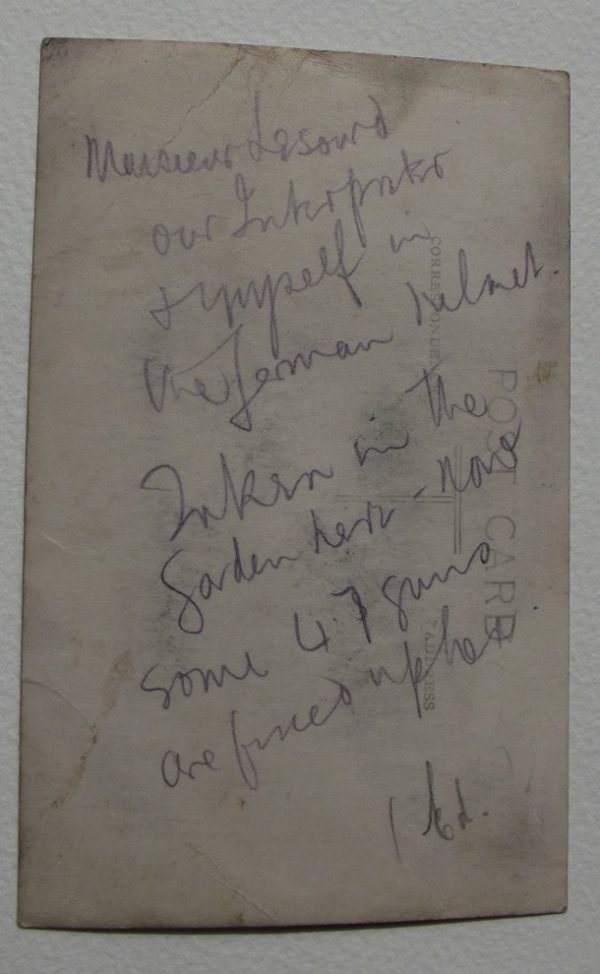 Monsieur Lesourd
our Interpreter
& myself in
the German helmet.
Taken in the
Garden here - Now
some 4.7 guns
are fixed up here
1 Ed.
POST CARD
CORRESPONDENCE
ADDRESS